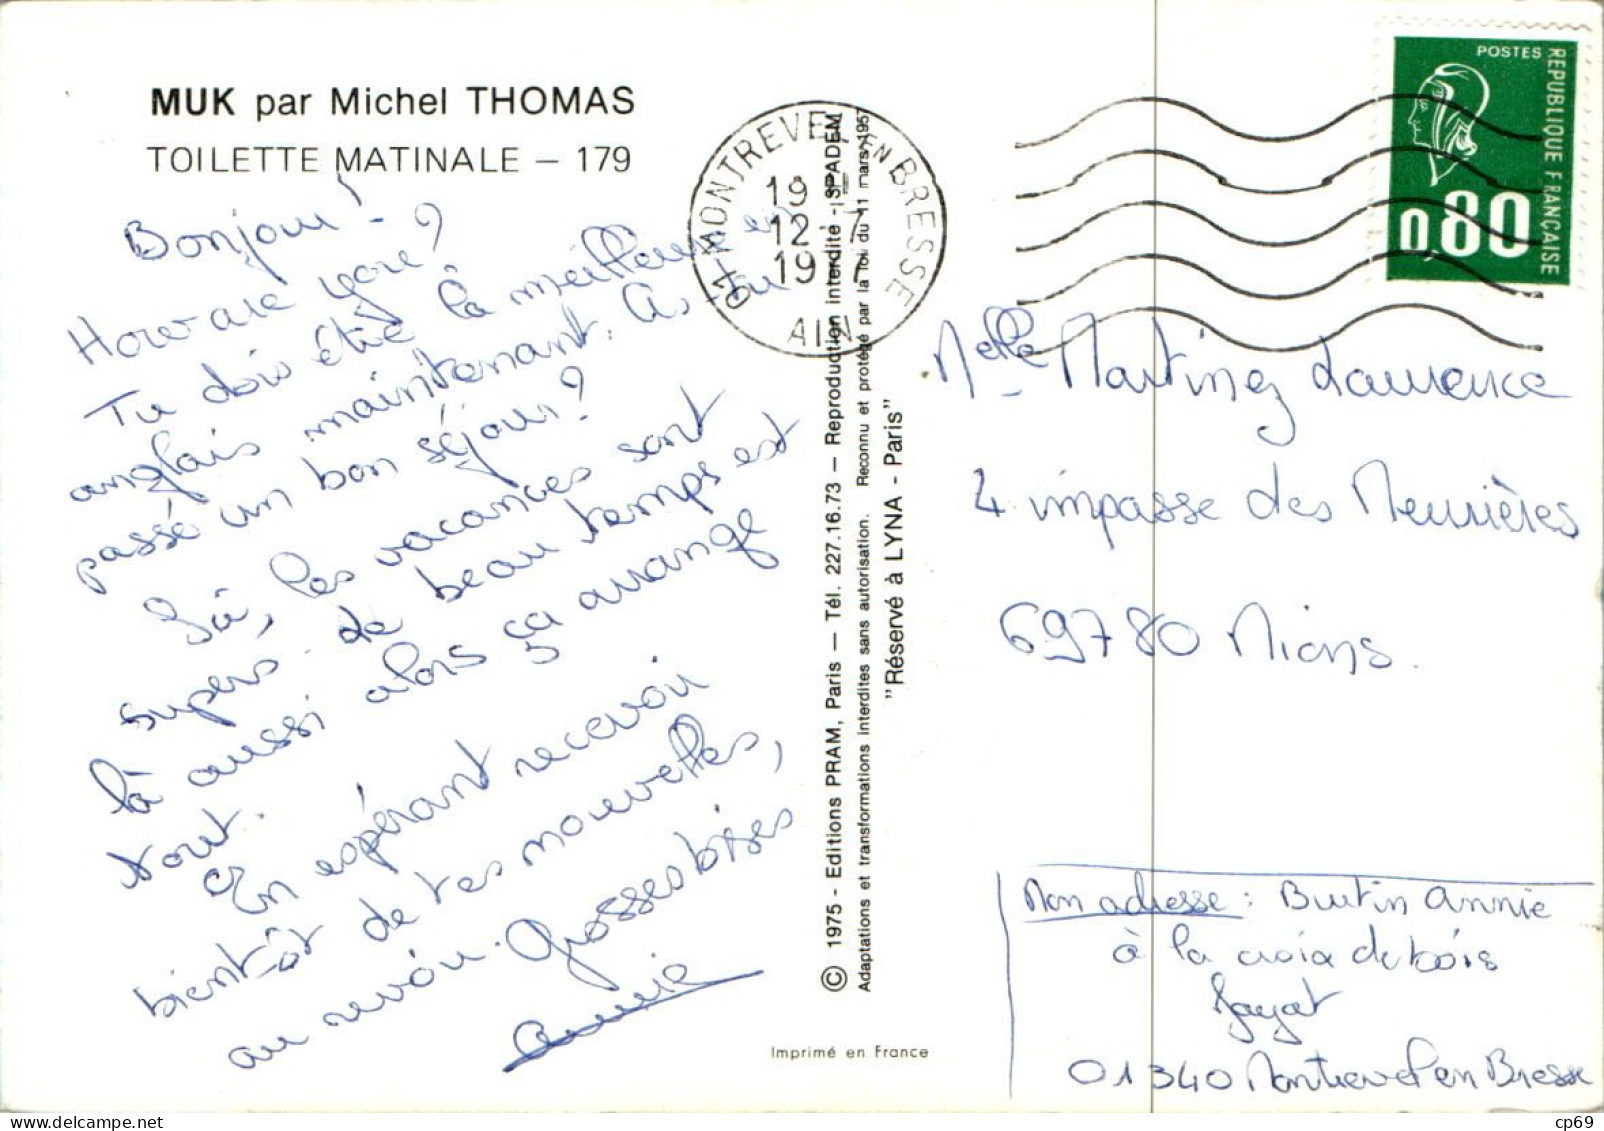 MUK par Michel THOMAS
TOILETTE MATINALE – 179
Bonjour!
How are you?
Tu dois être la meilleure en
anglais maintenant. As-tu
passé un bon séjour?
Ici, les vacances sont
supers. de beau temps est
là aussi alors ça arrange
tout.
En espérant recevoir
bientôt de tes nouvelles,
au revoir. Grosses bises
Annie
01-MONTREVEL EN BRESSE
19 H
12-7
1977
AIN
© 1975 - Editions PRAM, Paris — Tél. 227.16.73 — Reproduction interdite - SPADEM
Adaptations et transformations interdites sans autorisation. Reconnu et protégé par la loi du 11 mars 1957
"Réservé à LYNA - Paris"
Imprimé en France
POSTES
REPUBLIQUE FRANÇAISE
0,80
Melle Martinez Laurence
4 impasse des Meurières
69780 Mions.
Mon adresse : Burtin Annie
à la croix de bois
Jayat
01340 Montrevel en Bresse
cp69